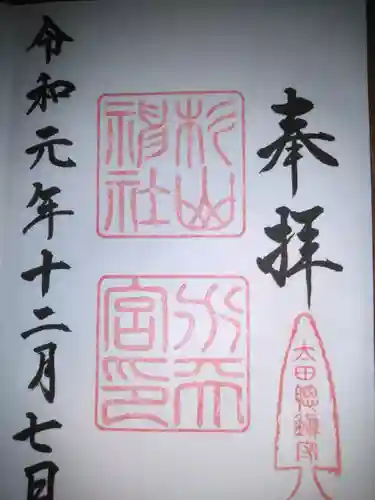 奉拝
太田總鎮守
杉山
神社
水天
宮印
令和元年十二月七日